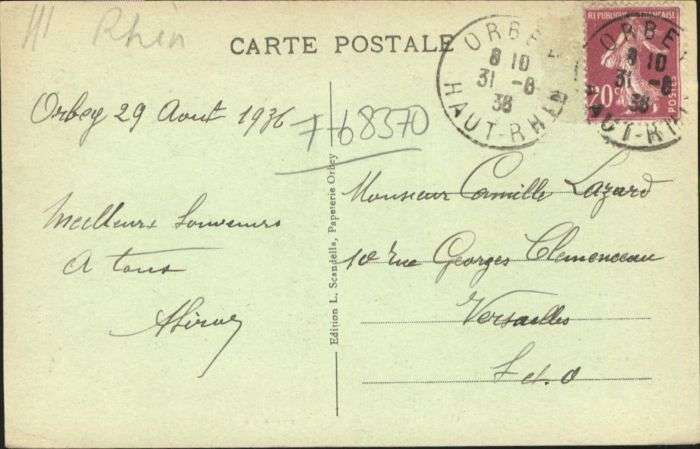 Rhin
CARTE POSTALE
ORBEY
8 10
31 -8
36
HAUT-RHIN
REPUBLIQUE FRANÇAISE
20c
POSTES
ORBEY
8 10
31 -8
36
HAUT-RHIN
Orbey 29 Aout 1936
768370
Meilleurs Souvenirs
A tous
Edition L. Scandella, Papeterie Orbey
Monsieur Camille Lazard
10 rue Georges Clemenceau
Versailles
S et O